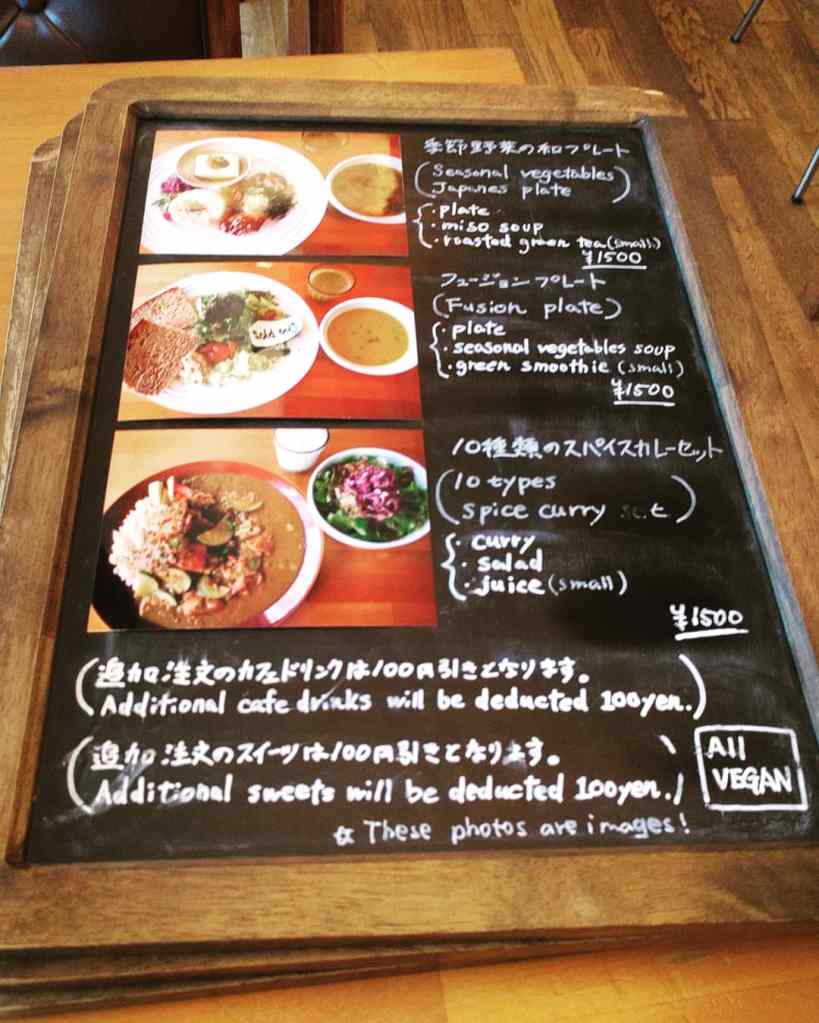 季節野菜の和プレート
(Seasonal vegetables
Japanes plate)
・plate
・miso soup
・roasted green tea (small)
¥1500
フュージョンプレート
(Fusion plate)
・plate
・seasonal vegetables soup
・green smoothie (small)
¥1500
Sold out
10種類のスパイスカレーセット
(10 types
spice curry set)
・curry
・salad
・juice (small)
¥1500
(追加注文のカフェドリンクは100円引きとなります。
Additional cafe drinks will be deducted 100yen.)
(追加注文のスイーツは100円引きとなります。
Additional sweets will be deducted 100yen.)
All
VEGAN
☆ These photos are images!